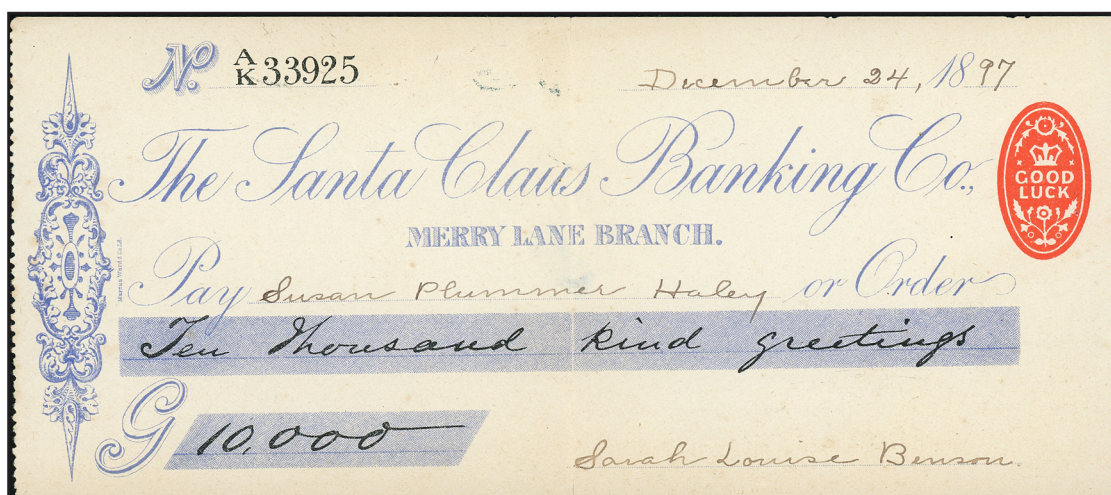 No. A/K 33925
December 24, 1897
The Santa Claus Banking Co.,
GOOD
LUCK
MERRY LANE BRANCH.
Pay Susan Plummer Haley or Order
Ten Thousand kind greetings
G 10,000
Sarah Louise Benson.